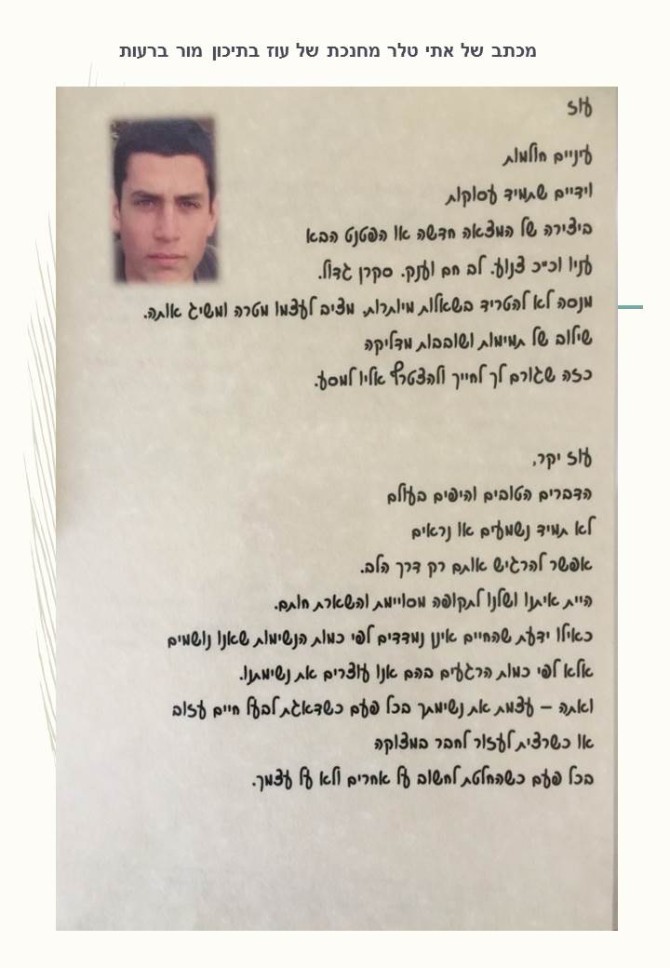 מכתב של אתי טלר מחנכת של עוז בתיכון מור ברעות
עוז
עיניים חולמות
וידיים שתמיד עסוקות
ביצירה של המצאה חדשה או הפטנט הבא
עניו וכ״כ צנוע. לב חם וענק. סקרן גדול.
מנסה לא להטריד בשאלות מיותרות. מציב לעצמו מטרה ומשיג אותה.
שילוב של תמימות ושובבות מדליקה
כזה שגורם לך לחייך ולהצטרף אליו למסע.
עוז יקר,
הדברים הטובים והיפים בעולם
לא תמיד נשמעים או נראים
אפשר להרגיש אותם רק דרך הלב.
היית איתנו ושלנו לתקופה מסויימת והשארת חותם.
כאילו ידעת שהחיים אינן נמדדים לפי כמות הנשימות שאנו נושמים
אלא לפי כמות הרגעים בהם אנו עוצרים את נשימתנו.
ואתה – עצמת את נשימתך בכל פעם כשדאגת לבעל חיים עזוב
או כשרצית לעזור לחבר במצוקה
בכל פעם כשהחלטת לחשוב על אחרים ולא על עצמך.